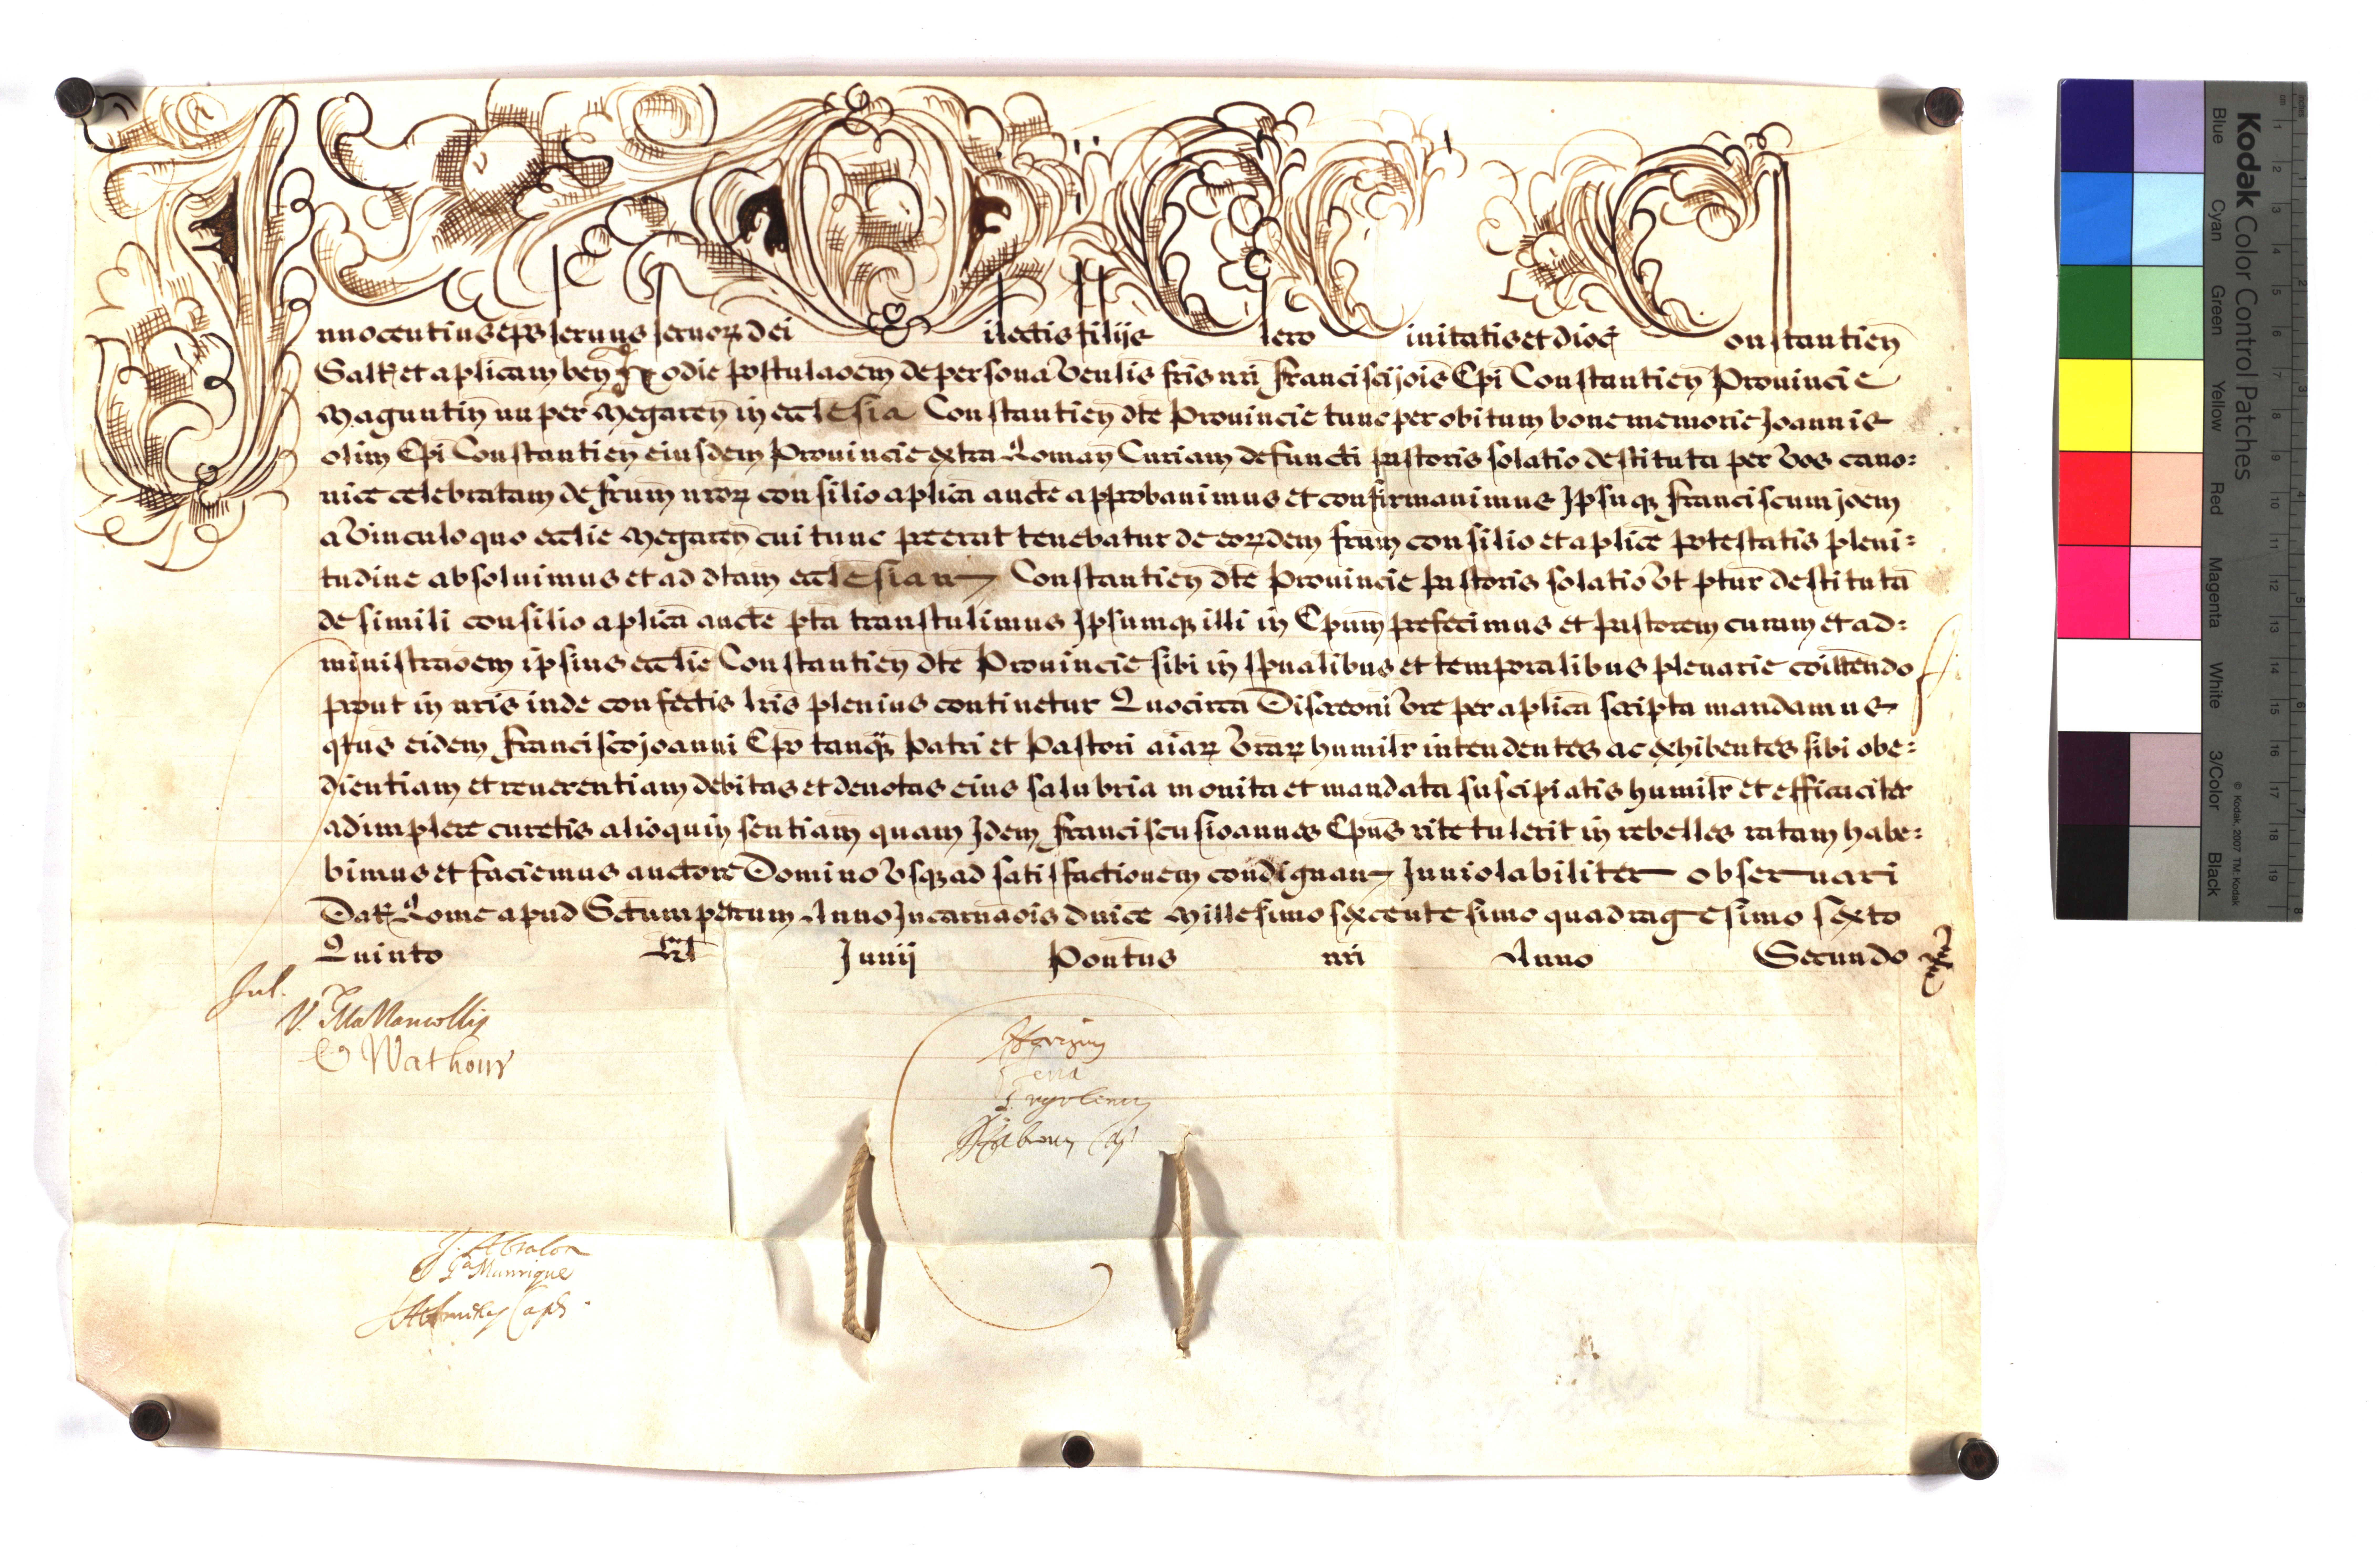 Innocentius eps seruus seruoꝝ dei Dilectis filijs Clero Ciuitatis et dioc̄ Constantien̄
Salt̄ et aplicam ben̄ Hodie postulaoēm de persona Venlis fris nri Francisci jois Epi Constantien̄ Prouincie
Maguntin̄ nuper Megaren̄ in ecclesia Constantien̄ dte Prouincie tunc per obitum bone memorie Joannis
olim Epi Constantien̄ eiusdem Prouincie extra Roman̄ Curiam defuncti pastoris solatio destituta per Vos cano=
nice celebratam de frum nroꝝ consilio aplica aucte approbauimus et confirmauimus Ipsuqꝫ Franciscum joem
a Vinculo quo ecclie Megaren̄ cui tunc preerat tenebatur de eoꝝdem frum consilio et aplice potestatis pleni=
tudine absoluimus et ad dtam ecclesiam Constantien̄ dte Prouincie Pastoris solatio Vt ptur destituta
de simili consilio aplica aucte pta transtulimus Ipsumqꝫ illi in Epum prefecimus et Pastorem curam et ad=
ministraoem ipsius ecclie Constantien̄ dte Prouincie sibi in spualibus et temporalibus plenarie coittendo
prout in nris inde confectis lris plenius continetur Quocirca Discreoni Vre per aplica scripta mandamus
qtus eidem Francisco joanni Epo tanqȝ Patri et Pastori aiaꝝ Vraꝝ humilr intendentes ac exhibentes sibi obe=
dientiam et reuerentiam debitas et deuotas eius salubria monita et mandata suscipiatis humilr et efficaciter
adimplere curetis alioquin sentiam quam Idem Franciscus ioannes Epus rite tulerit in rebelles ratam habe=
bimus et faciemus auctore Domino Vsqꝫ ad satisfactionem condignam Inuiolabiliter obseruari
Dat̄ Rome apud Sctum petrum Anno Incarnaois dnice Millesimo sexcentesimo quadragesimo sexto
Quinto Kl Junij Pontus nri Anno Secundo
Jul.
Wathour
Manrique
Kodak Color Control Patches
Blue Cyan Green Yellow Red Magenta White 3/Color Black
© Kodak, 2007 TM: Kodak
cm 1 2 3 4 5 6 7 8 9 10 11 12 13 14 15 16 17 18 19
inches 1 2 3 4 5 6 7 8